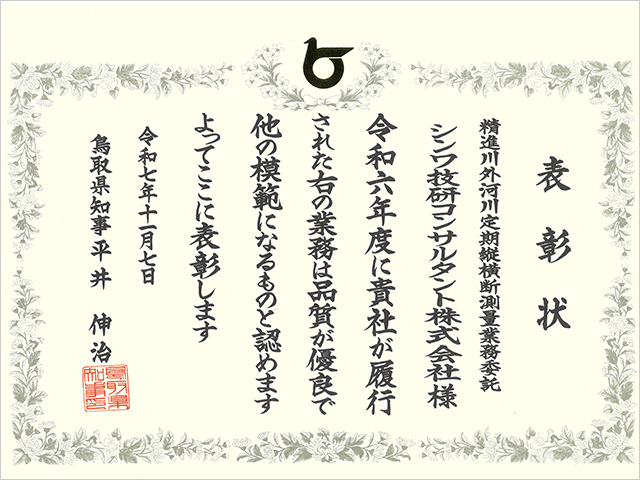 表彰状
精進川外河川定期縦横断測量業務委託
シンワ技研コンサルタント株式会社様
令和六年度に貴社が履行
された右の業務は品質が優良で
他の模範になるものと認めます
よってここに表彰します
令和七年十一月七日
鳥取県知事平井伸治
鳥取県知事之印